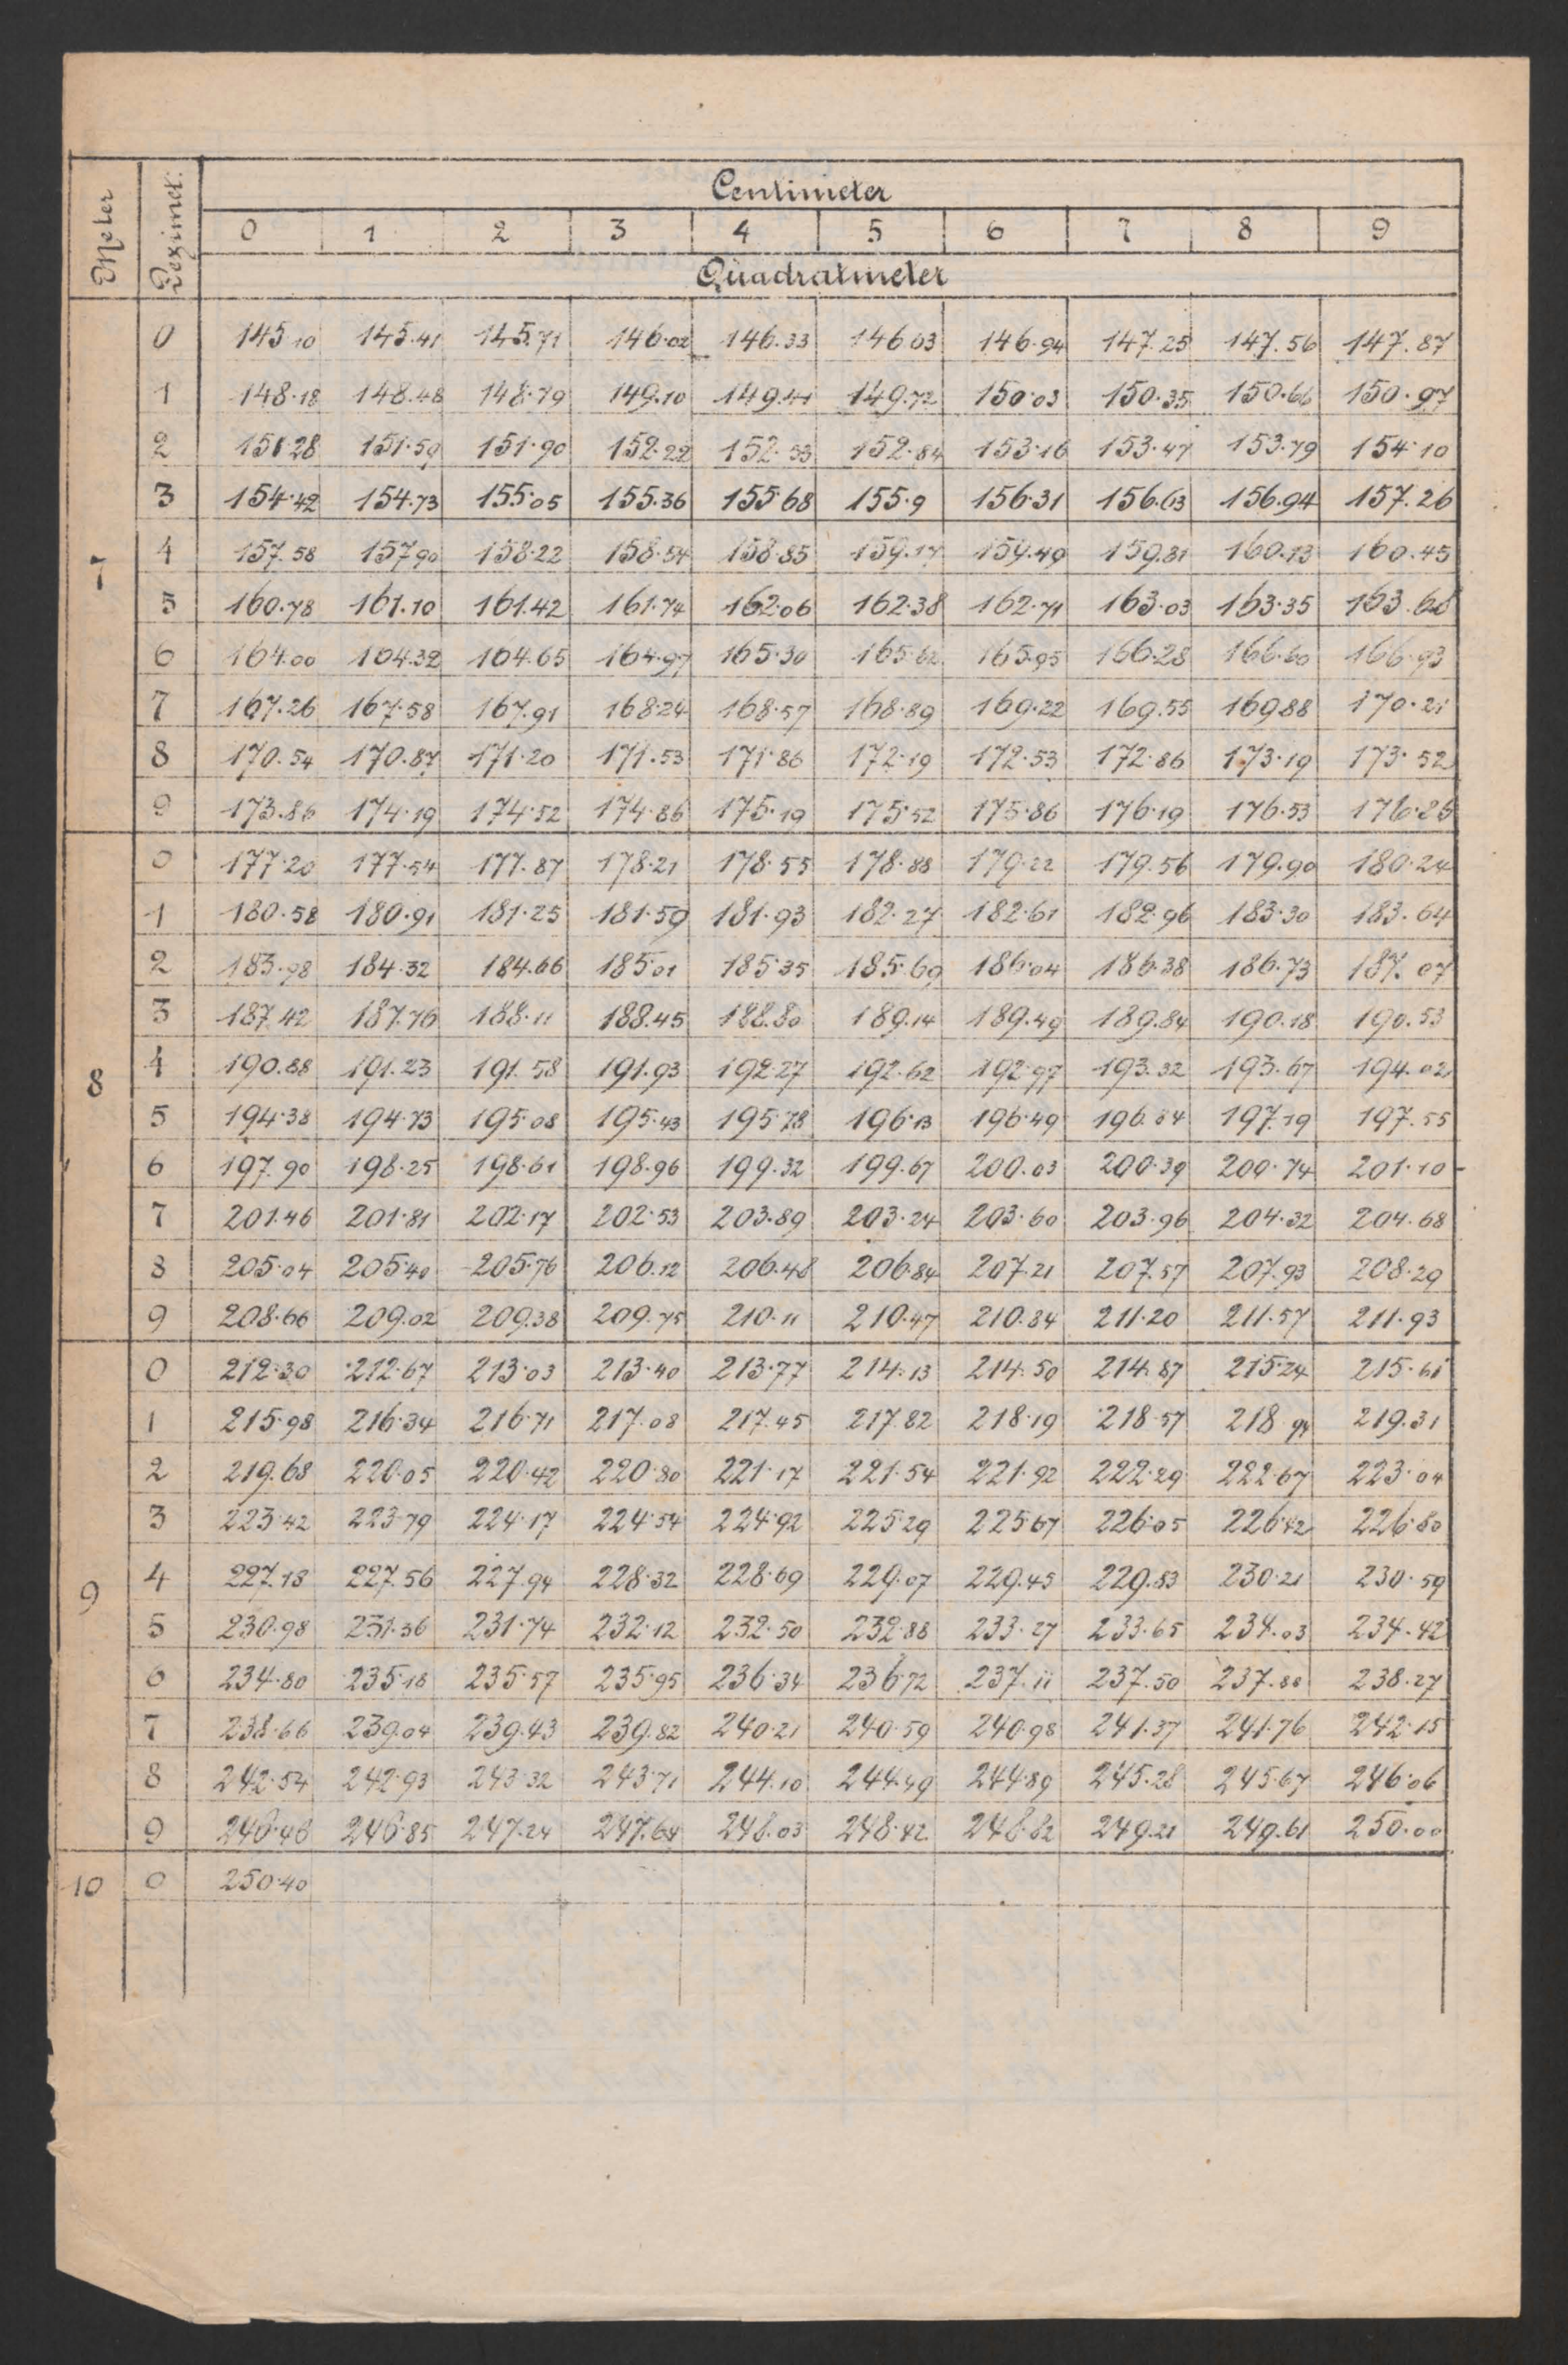 Meter Dezimet. Centimeter
0 1 2 3 4 5 6 7 8 9
Quadratmeter
0 145.10 145.41 145.71 146.02 146.33 146.63 146.94 147.25 147.56 147.87
1 148.18 148.48 148.79 149.10 149.41 149.72 150.03 150.35 150.66 150.97
2 151.28 151.59 151.90 152.22 152.53 152.84 153.16 153.47 153.79 154.10
3 154.42 154.73 155.05 155.36 155.68 155.9 156.31 156.63 156.94 157.26
7 4 157.58 157.90 158.22 158.54 158.85 159.17 159.49 159.81 160.13 160.45
5 160.78 161.10 161.42 161.74 162.06 162.38 162.71 163.03 163.35 163.68
6 164.00 164.32 164.65 164.97 165.30 165.62 165.95 166.28 166.60 166.93
7 167.26 167.58 167.91 168.24 168.57 168.89 169.22 169.55 169.88 170.21
8 170.54 170.87 171.20 171.53 171.86 172.19 172.53 172.86 173.19 173.52
9 173.86 174.19 174.52 174.86 175.19 175.52 175.86 176.19 176.53 176.86
0 177.20 177.54 177.87 178.21 178.55 178.88 179.22 179.56 179.90 180.24
1 180.58 180.91 181.25 181.59 181.93 182.27 182.61 182.96 183.30 183.64
2 183.98 184.32 184.66 185.01 185.35 185.69 186.04 186.38 186.73 187.07
3 187.42 187.76 188.11 188.45 188.80 189.14 189.49 189.84 190.18 190.53
8 4 190.88 191.23 191.58 191.93 192.27 192.62 192.97 193.32 193.67 194.02
5 194.38 194.73 195.08 195.43 195.78 196.13 196.49 196.84 197.19 197.55
6 197.90 198.25 198.61 198.96 199.32 199.67 200.03 200.39 200.74 201.10
7 201.46 201.81 202.17 202.53 203.89 203.24 203.60 203.96 204.32 204.68
8 205.04 205.40 205.76 206.12 206.48 206.84 207.21 207.57 207.93 208.29
9 208.66 209.02 209.38 209.75 210.11 210.47 210.84 211.20 211.57 211.93
0 212.30 212.67 213.03 213.40 213.77 214.13 214.50 214.87 215.24 215.61
1 215.98 216.34 216.71 217.08 217.45 217.82 218.19 218.57 218.94 219.31
2 219.68 220.05 220.42 220.80 221.17 221.54 221.92 222.29 222.67 223.04
3 223.42 223.79 224.17 224.54 224.92 225.29 225.67 226.05 226.42 226.80
9 4 227.18 227.56 227.94 228.32 228.69 229.07 229.45 229.83 230.21 230.59
5 230.98 231.36 231.74 232.12 232.50 232.88 233.27 233.65 234.03 234.42
6 234.80 235.18 235.57 235.95 236.34 236.72 237.11 237.50 237.88 238.27
7 238.66 239.04 239.43 239.82 240.21 240.59 240.98 241.37 241.76 242.15
8 242.54 242.93 243.32 243.71 244.10 244.49 244.89 245.28 245.67 246.06
9 246.46 246.85 247.24 247.64 248.03 248.42 248.82 249.21 249.61 250.00
10 0 250.40